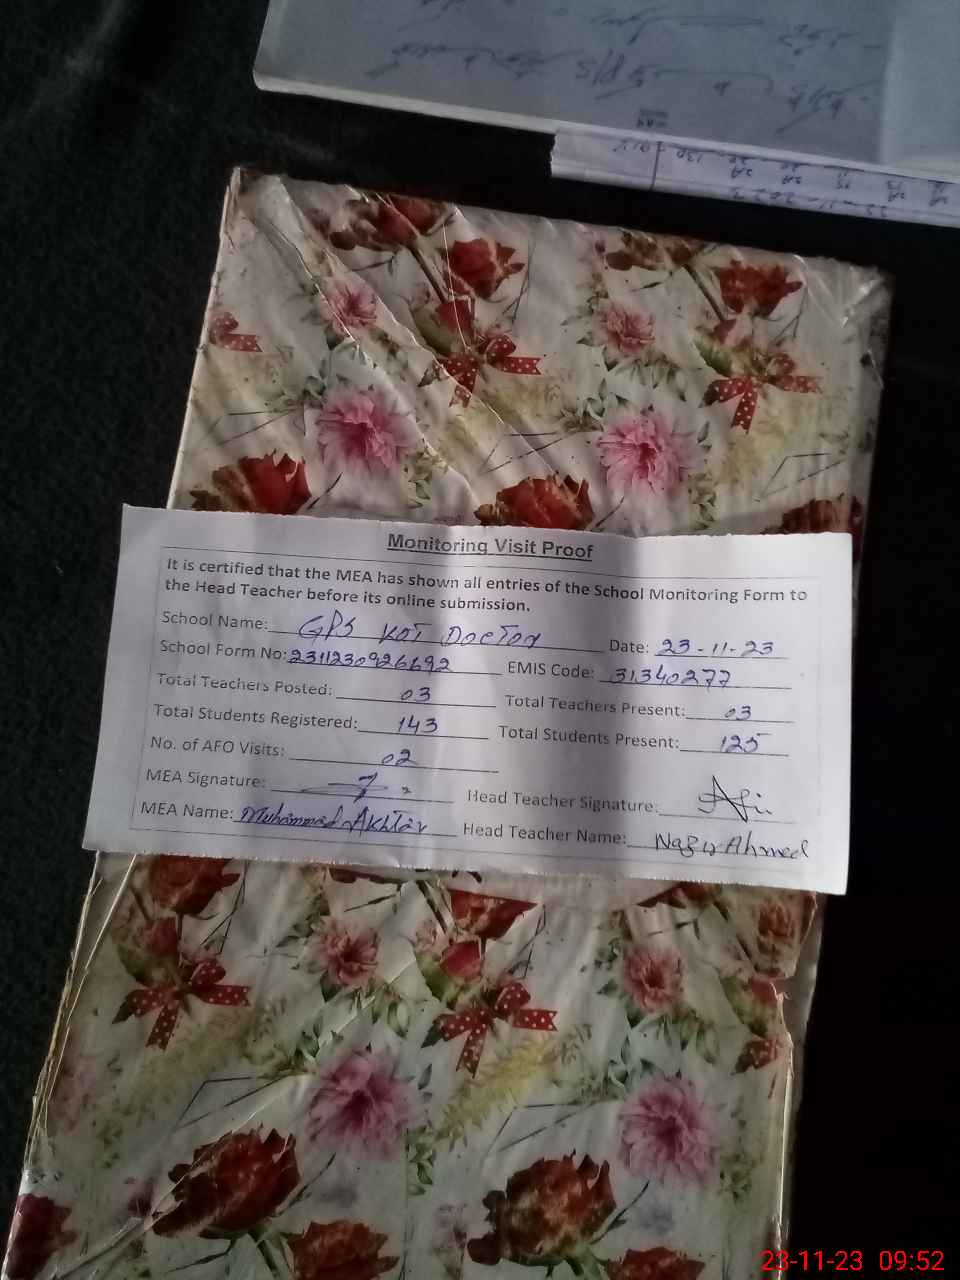 Monitoring Visit Proof
It is certified that the MEA has shown all entries of the School Monitoring Form to
the Head Teacher before its online submission.
School Name: GPS KOT DOCTOR Date: 23-11-23
School Form No: 2311230926692 EMIS Code: 31340277
Total Teachers Posted: 03 Total Teachers Present: 03
Total Students Registered: 143 Total Students Present: 125
No. of AFO Visits: 02
MEA Signature: Head Teacher Signature:
MEA Name: Muhammad Akhtar Head Teacher Name: Nazir Ahmed
23-11-23 09:52